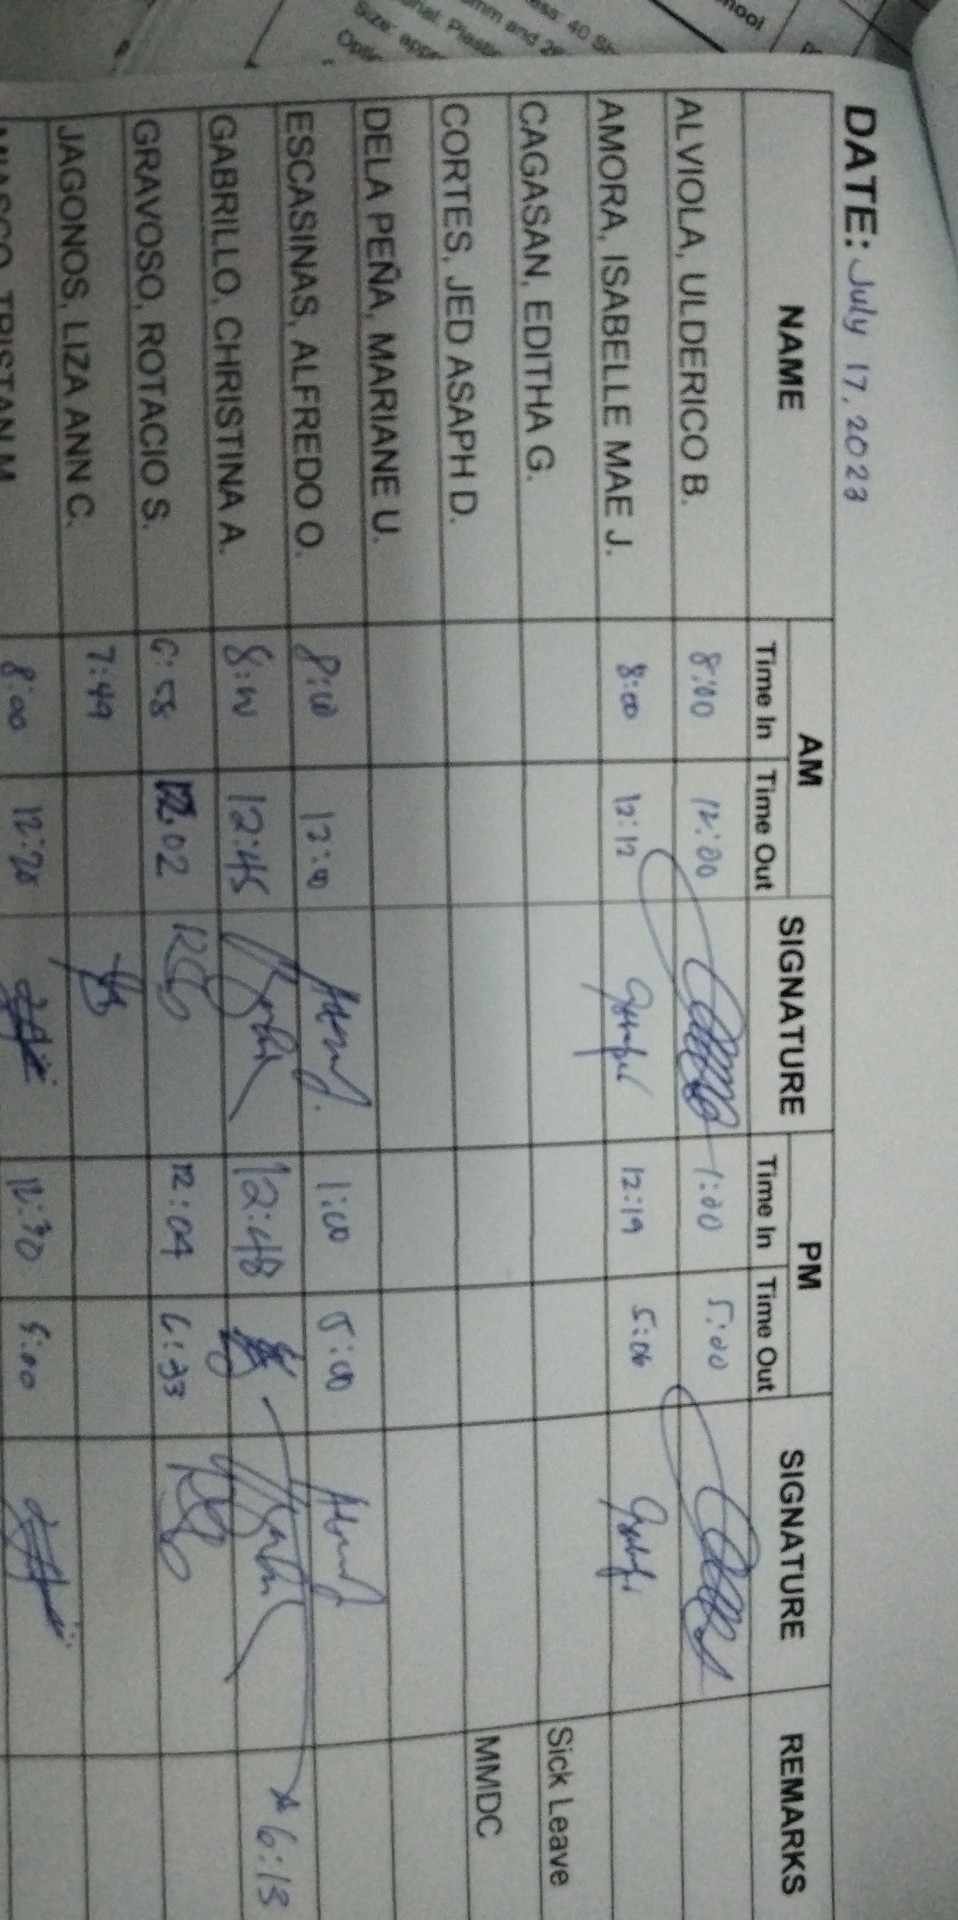 DATE: July 17, 2023
NAME AM SIGNATURE PM SIGNATURE REMARKS
Time In Time Out Time In Time Out
ALVIOLA, ULDERICO B. 8:00 12:00 1:00 5:00
AMORA, ISABELLE MAE J. 8:00 12:12 12:19 5:06
CAGASAN, EDITHA G. Sick Leave
CORTES, JED ASAPH D. MMDC
DELA PEÑA, MARIANE U.
ESCASINAS, ALFREDO O. 8:00 12:00 1:00 5:00
GABRILLO, CHRISTINA A. 8:00 12:45 12:48 6:13
GRAVOSO, ROTACIO S. 6:58 12:02 12:04 6:33
JAGONOS, LIZA ANN C. 7:49
TRISTAN M. 8:00 12:28 12:30 5:00